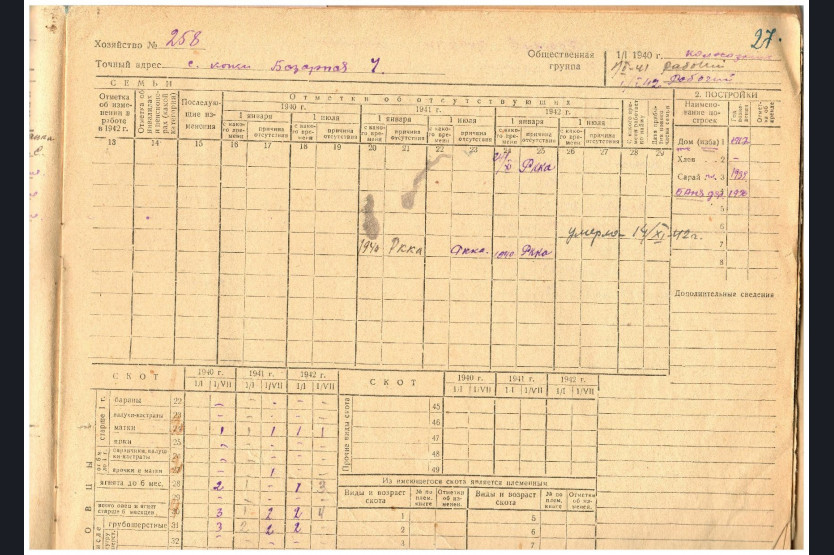 27.
Хозяйство № 258
Точный адрес с. Базарная 7.
Общественная группа
1/I 1940 г.
рабочий
Рабочий
СЕМЬИ
Отметка об изменении в работе в 1942 г.
Последующие изменения
Отметки об отсутствующих
1940 г. 1941 г. 1942 г.
1 января 1 июля 1 января 1 июля 1 января 1 июля
с какого времени причина отсутствия с какого времени причина отсутствия с какого времени причина отсутствия с какого времени причина отсутствия с какого времени причина отсутствия с какого времени причина отсутствия
13 14 15 16 17 18 19 20 21 22 23 24 25 26 27 28 29
Ркка
умерла 14/XI 42 г.
1940 Ркка Ркка. 1940 Ркка
2. ПОСТРОЙКИ
Наименование построек
Дом (изба) 1 1912
Хлев 2 –
Сарай 3
4
5
6
7
8
Дополнительные сведения
СКОТ 1940 г. 1941 г. 1942 г.
1/I 1/VII 1/I 1/VII 1/I 1/VII
ОВЦЫ
старше 1 г.
бараны 22
валухи-кастраты 23
матки 1 1 1 1
ярки 25
ярочки и матки 1
ягнята до 6 мес. 28 2 1
29
всего овец и ягнят старше 6 месяцев 3 2 2 4
грубошерстные 31 3 2 2 2
32
СКОТ 1940 г. 1941 г. 1942 г.
1/I 1/VII 1/I 1/VII 1/I 1/VII
Прочие виды скота
45
46
47
48
49
Из имеющегося скота является племенным
Виды и возраст скота № по плем. книге Отметки об изменен. Виды и возраст скота № по плем. книге Отметки об изменен.
1 5
2 6
3 7